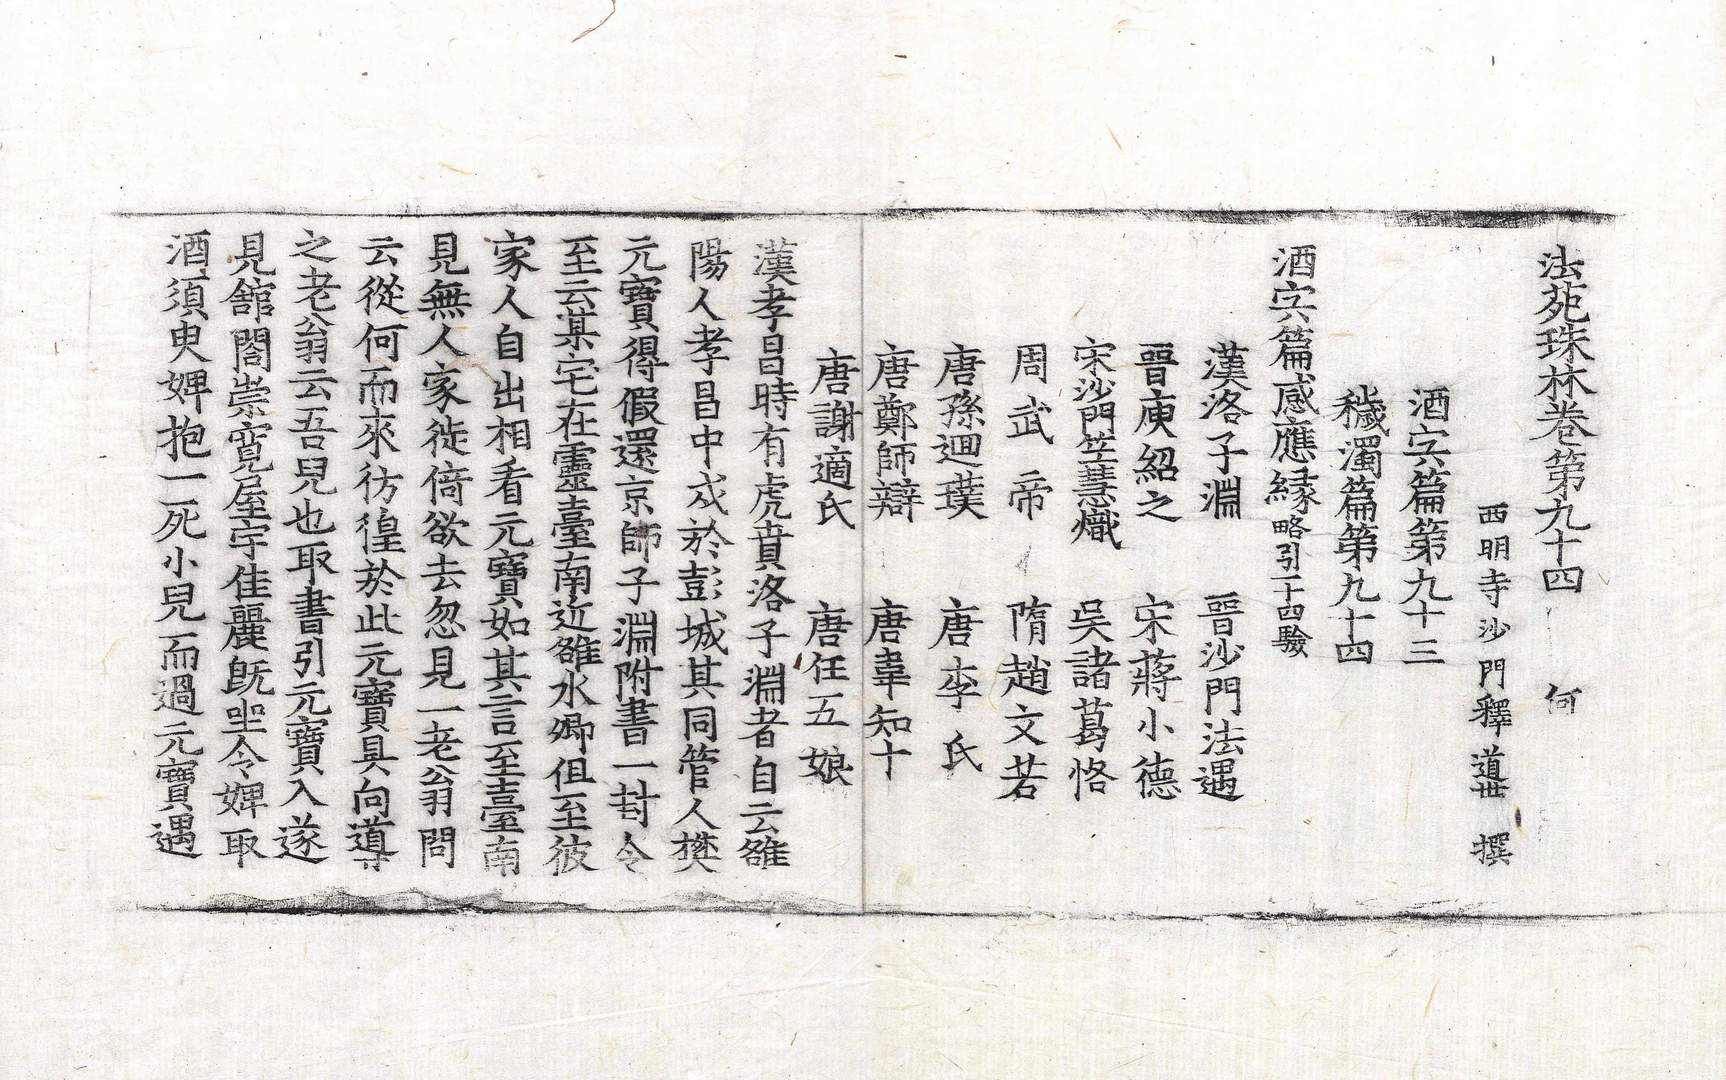 法苑珠林卷第九十四　何
西明寺沙門釋道世　撰
酒宍篇第九十三
穢濁篇第九十四
酒宍篇感應緣略引十四驗
漢洛子淵　晉沙門法遇
晉庾紹之　宋蔣小德
宋沙門竺慧熾　吳諸葛恪
周武帝　隋趙文若
唐孫迴璞　唐李氏
唐鄭師辯　唐韋知十
唐謝適氏　唐任五娘
漢孝昌時有虎賁洛子淵者自云雒
陽人孝昌中戍於彭城其同管人樊
元寶得假還京師子淵附書一封令
至云某宅在靈臺南近雒水鄉但至彼
家人自出相看元寶如其言至臺南
見無人家徙倚欲去忽見一老翁問
云從何而來彷徨於此元寶具向導
之老翁云吾兒也取書引元寶入遂
見館閣崇寬屋宇佳麗既坐令婢取
酒須臾婢抱一死小兒而過元寶遇